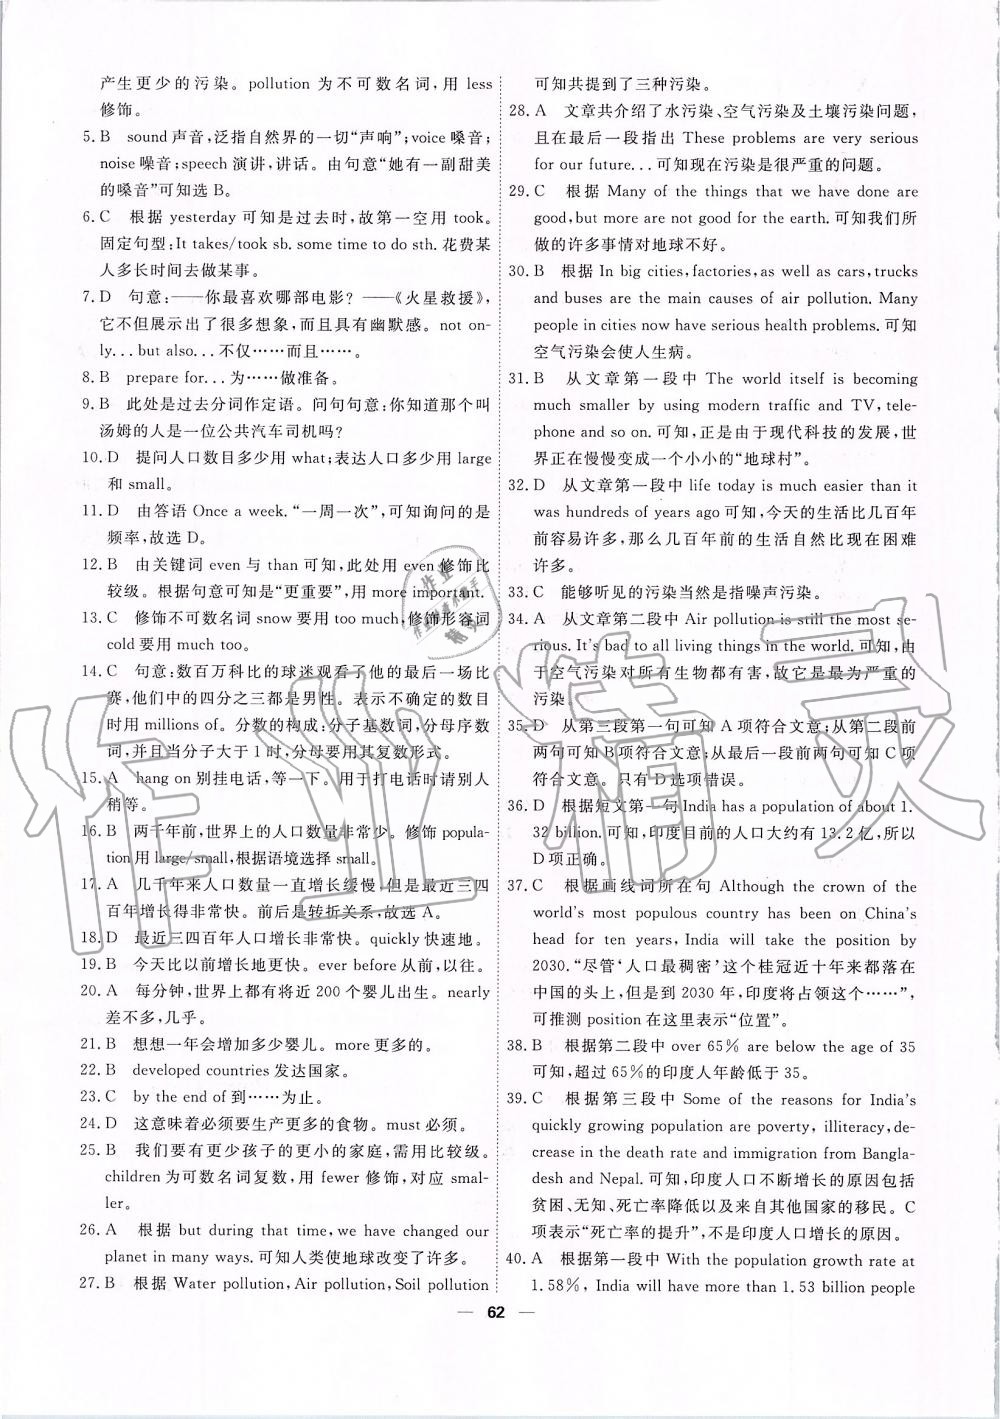 产生更少的污染。pollution 为不可数名词,用 less
修饰。
5. B sound 声音,泛指自然界的一切“声响”;voice 嗓音;
noise 噪音;speech 演讲,讲话。由句意“她有一副甜美
的嗓音”可知选 B。
6. C 根据 yesterday 可知是过去时,故第一空用 took。
固定句型:It takes/took sb. some time to do sth. 花费某
人多长时间去做某事。
7. D 句意:——你最喜欢哪部电影? ——《火星救援》,
它不但展示出了很多想象,而且具有幽默感。not on-
ly...but also...不仅……而且……。
8. B prepare for...为……做准备。
9. B 此处是过去分词作定语。问句句意:你知道那个叫
汤姆的人是一位公共汽车司机吗?
10. D 提问人口数目多少用 what;表达人口多少用 large
和 small。
11. D 由答语 Once a week.“一周一次”,可知询问的是
频率,故选 D。
12. B 由关键词 even 与 than 可知,此处用 even 修饰比
较级。根据句意可知是“更重要”,用 more important.
13. C 修饰不可数名词 snow 要用 too much,修饰形容词
cold 要用 much too。
14. C 句意:数百万科比的球迷观看了他的最后一场比
赛,他们中的四分之三都是男性。表示不确定的数目
时用 millions of。分数的构成:分子基数词,分母序数
词,并且当分子大于 1 时,分母要用其复数形式。
15. A hang on 别挂电话,等一下。用于打电话时请别人
稍等。
16. B 两千年前,世界上的人口数量非常少。修饰 popula-
tion 用 large/small,根据语境选择 small。
17. A 几千年来人口数量一直增长缓慢,但是最近三四
百年增长得非常快。前后是转折关系,故选 A。
18. D 最近三四百年人口增长非常快。quickly 快速地。
19. B 今天比以前增长地更快。ever before 从前,以往。
20. A 每分钟,世界上都有将近 200 个婴儿出生。nearly
差不多,几乎。
21. B 想想一年会增加多少婴儿。more 更多的。
22. B developed countries 发达国家。
23. C by the end of 到……为止。
24. D 这意味着必须要生产更多的食物。must 必须。
25. B 我们要有更少孩子的更小的家庭,需用比较级。
children 为可数名词复数,用 fewer 修饰,对应 smal-
ler。
26. A 根据 but during that time, we have changed our
planet in many ways. 可知人类使地球改变了许多。
27. B 根据 Water pollution, Air pollution, Soil pollution
可知共提到了三种污染。
28. A 文章共介绍了水污染、空气污染及土壤污染问题,
且在最后一段指出 These problems are very serious
for our future...可知现在污染是很严重的问题。
29. C 根据 Many of the things that we have done are
good, but more are not good for the earth. 可知我们所
做的许多事情对地球不好。
30. B 根据 In big cities, factories, as well as cars, trucks
and buses are the main causes of air pollution. Many
people in cities now have serious health problems. 可知
空气污染会使人生病。
31. B 从文章第一段中 The world itself is becoming
much smaller by using modern traffic and TV, tele-
phone and so on. 可知,正是由于现代科技的发展,世
界正在慢慢变成一个小小的“地球村”。
32. D 从文章第一段中 life today is much easier than it
was hundreds of years ago 可知,今天的生活比几百年
前容易许多,那么几百年前的生活自然比现在困难
许多。
33. C 能够听见的污染当然是指噪声污染。
34. A 从文章第二段中 Air pollution is still the most se-
rious. It's bad to all living things in the world. 可知,由
于空气污染对所有生物都有害,故它是最为严重的
污染。
35. D 从第三段第一句可知 A 项符合文意;从第二段前
两句可知 B 项符合文意;从最后一段前两句可知 C 项
符合文意。只有 D 选项错误。
36. D 根据短文第一句 India has a population of about 1.
32 billion. 可知,印度目前的人口大约有 13.2 亿,所以
D 项正确。
37. C 根据画线词所在句 Although the crown of the
world's most populous country has been on China's
head for ten years, India will take the position by
2030.“尽管‘人口最稠密’这个桂冠近十年来都落在
中国的头上,但是到 2030 年,印度将占领这个……”,
可推测 position 在这里表示“位置”。
38. B 根据第二段中 over 65% are below the age of 35
可知,超过 65%的印度人年龄低于 35。
39. C 根据第三段中 Some of the reasons for India's
quickly growing population are poverty, illiteracy, de-
crease in the death rate and immigration from Bangla-
desh and Nepal. 可知,印度人口不断增长的原因包括
贫困、无知、死亡率降低以及来自其他国家的移民。C
项表示“死亡率的提升”,不是印度人口增长的原因。
40. A 根据第一段中 With the population growth rate at
1.58%, India will have more than 1.53 billion people
— 62 —
作业精灵